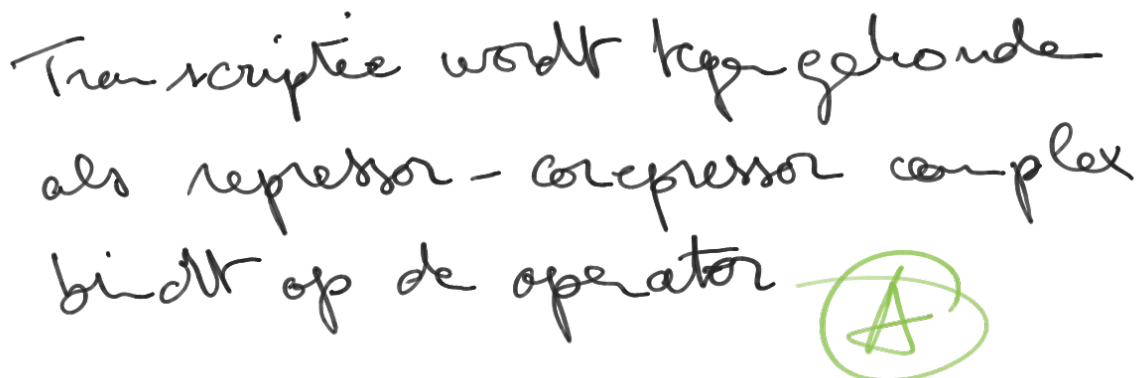 Transcriptie wordt tegengehouden
als repressor - corepressor complex
bindt op de operator A